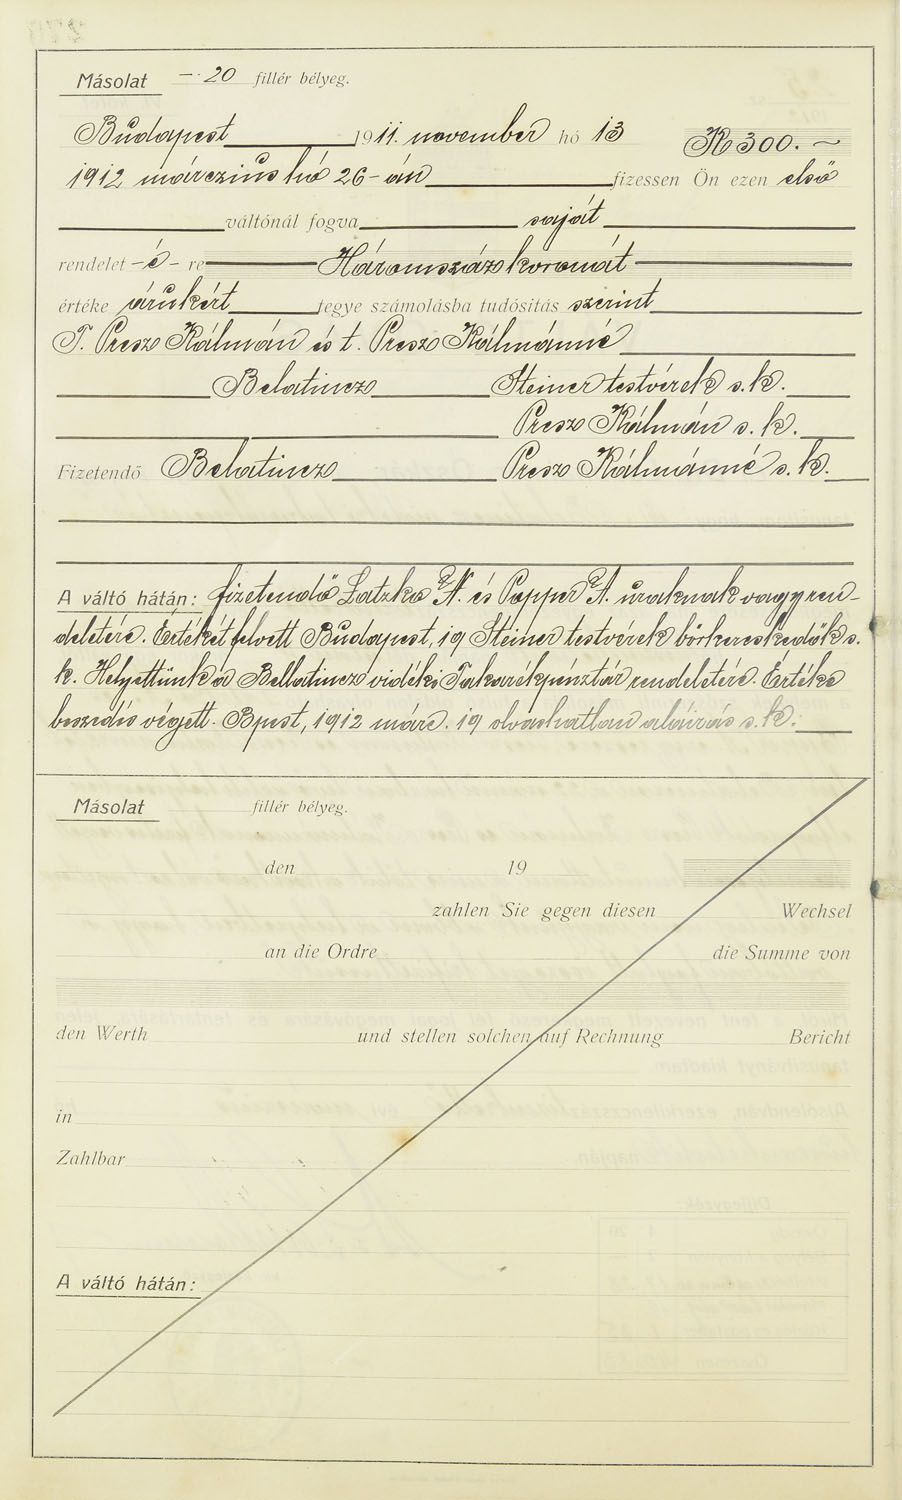 Másolat —·20 fillér bélyeg.
Budapest 1911. november hó 13 K 300. —
1912 márczius hó 26-án fizessen Ön ezen első
váltónál fogva saját
rendelet -é- re Háromszáz koronát
értéke árúkért tegye számolásba tudósítás szerint
T. Presz Kálmán és t. Presz Kálmánné
Belatincz Steiner testvérek s. k.
Presz Kálmán s. k.
Fizetendő Belatincz Presz Kálmánné s. k.
A váltó hátán: fizetendő Latzko N. és Popper A. uraknak vagy ren-
deletére. Értékét felvett Budapest, 19 Steiner testvérek bőrkereskedők s.
k. Helyettünk a Bellatincz vidéki Takarékpénztár rendeletére. Értéke
beszedés végett. Bpest, 1912 márc. 19 olvashatlan aláírás s. k.
Másolat fillér bélyeg.
den 19
zahlen Sie gegen diesen Wechsel
an die Ordre die Summe von
den Werth und stellen solchen auf Rechnung Bericht
in
Zahlbar
A váltó hátán: